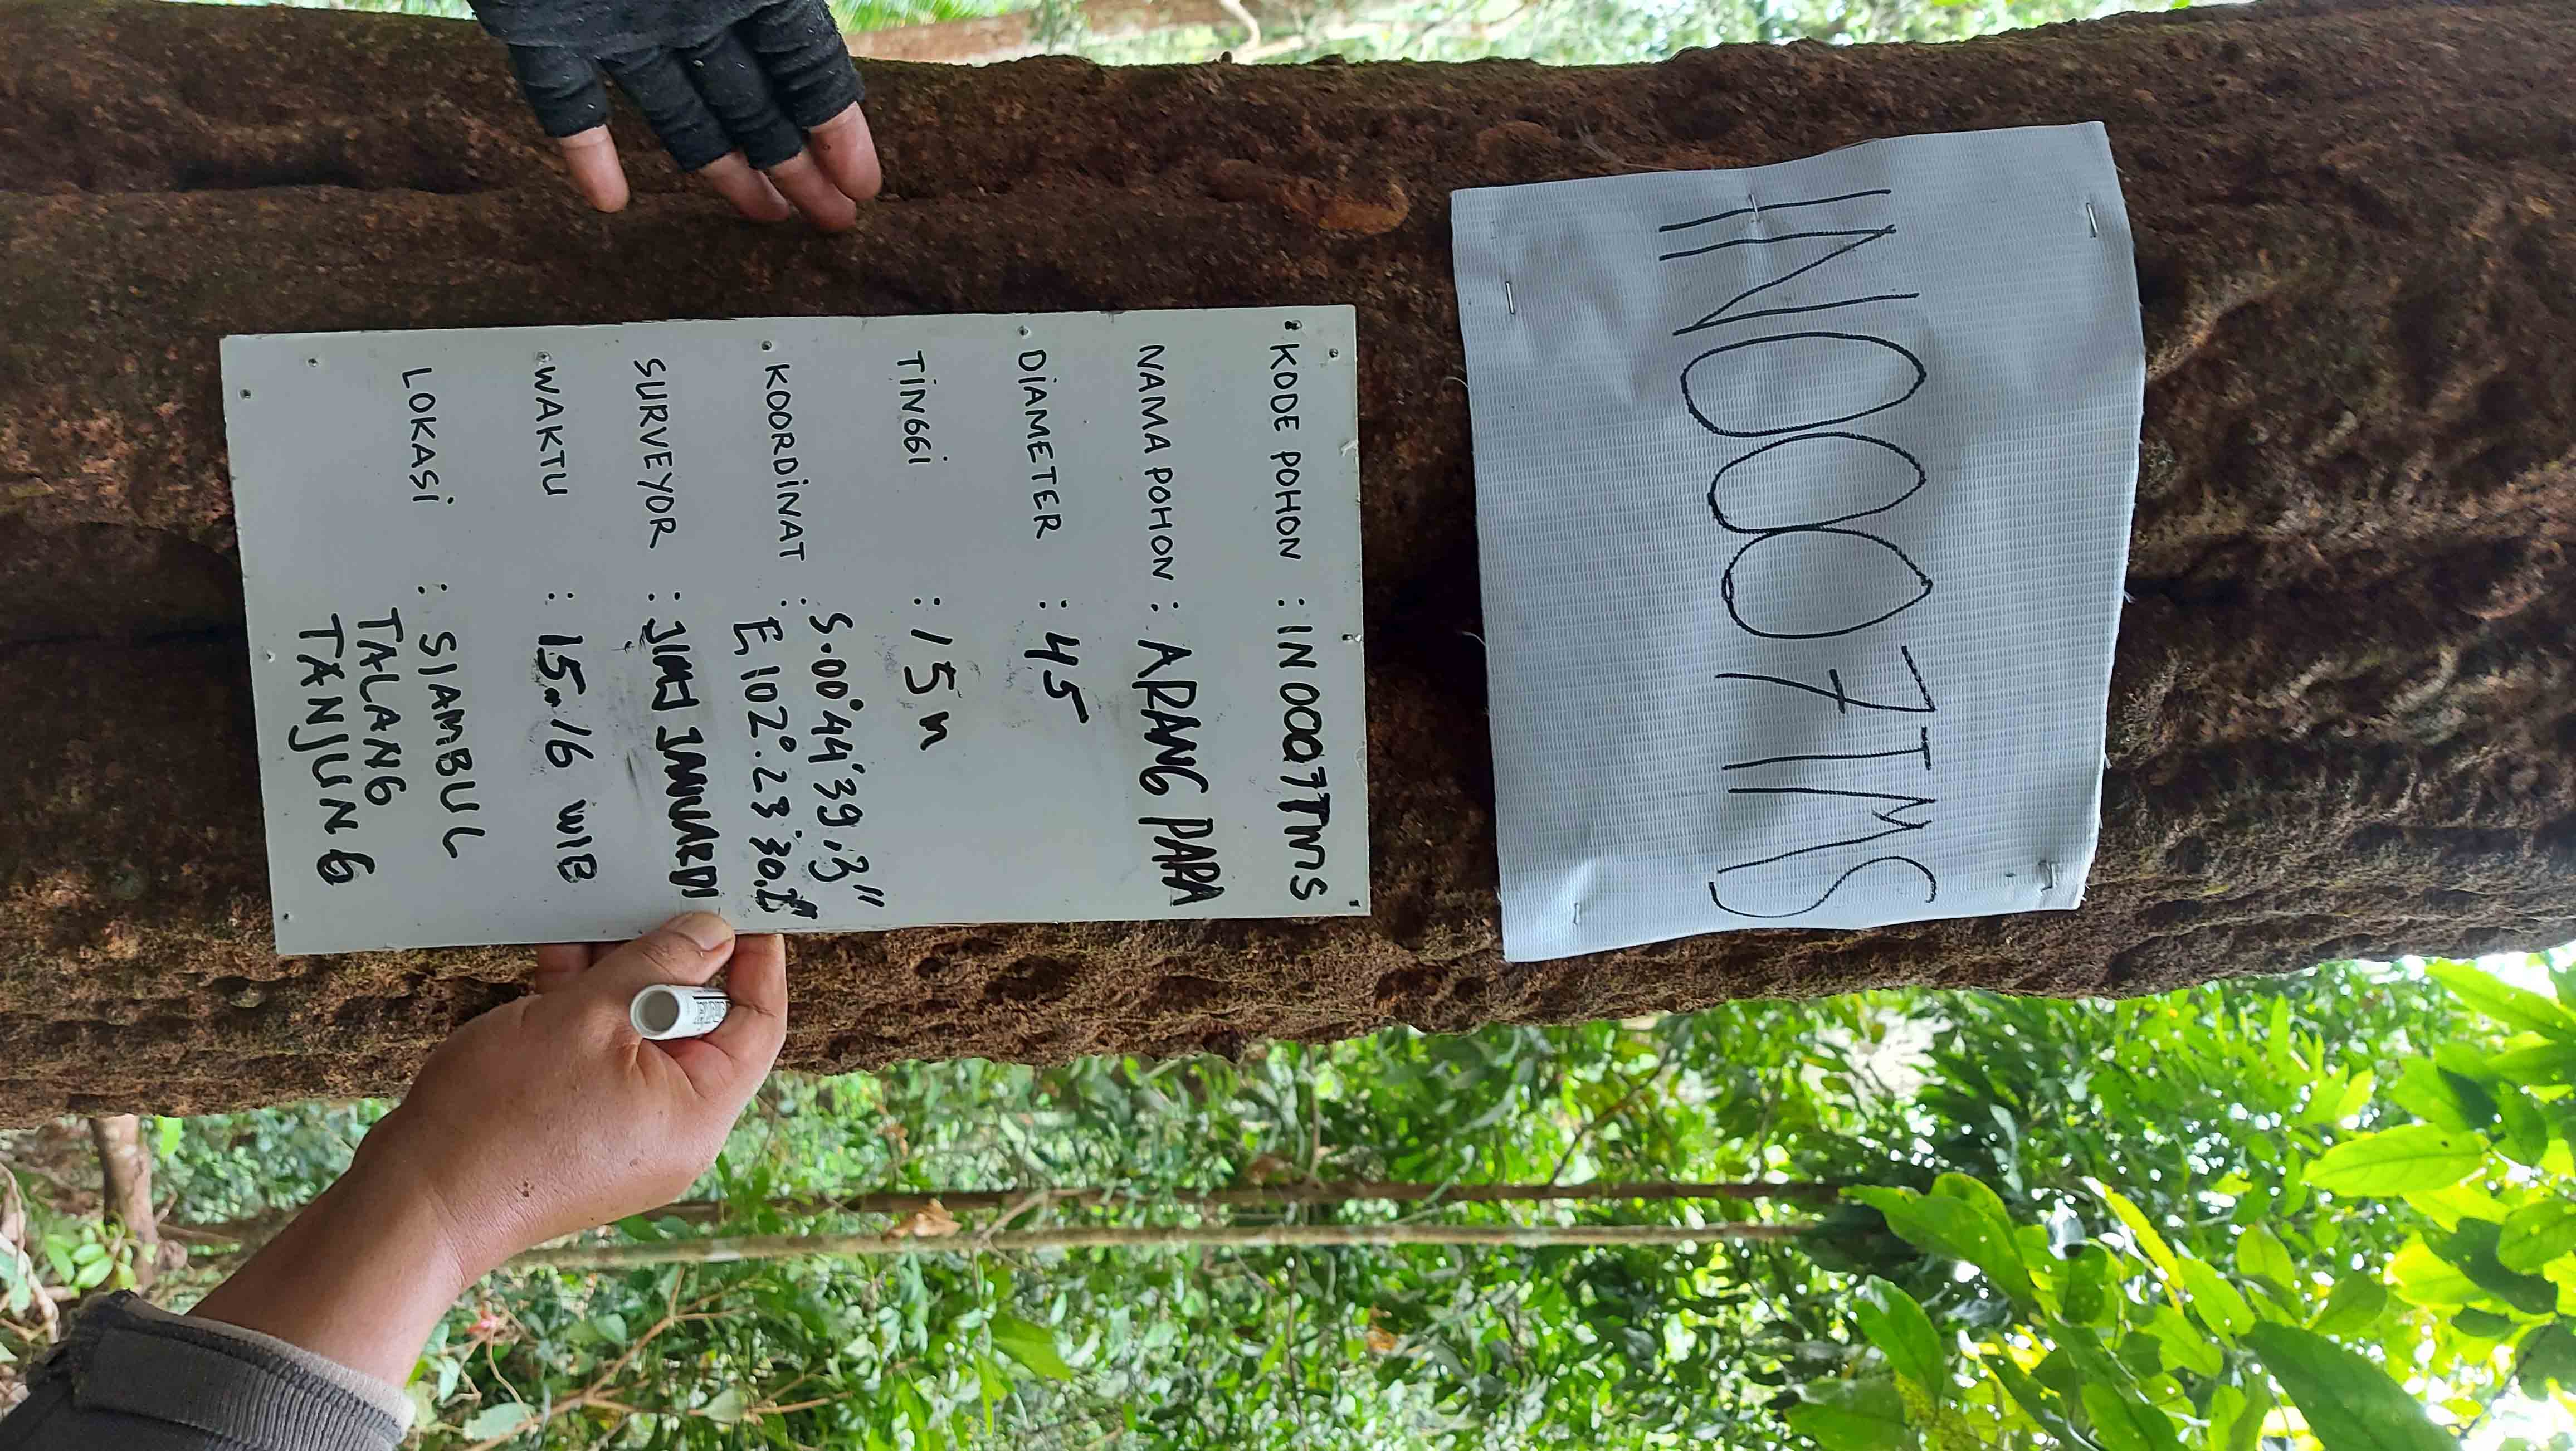 IN0007TMS
KODE POHON : IN0007TMS
NAMA POHON : ARANG PARA
DIAMETER : 45
TINGGI : 15 m
KOORDINAT : S.00°44'39.3"
E 102°.23'30.
SURVEYOR : JANUARDI
WAKTU : 15.16 WIB
LOKASI : SIAMBUL
TALANG
TANJUNG